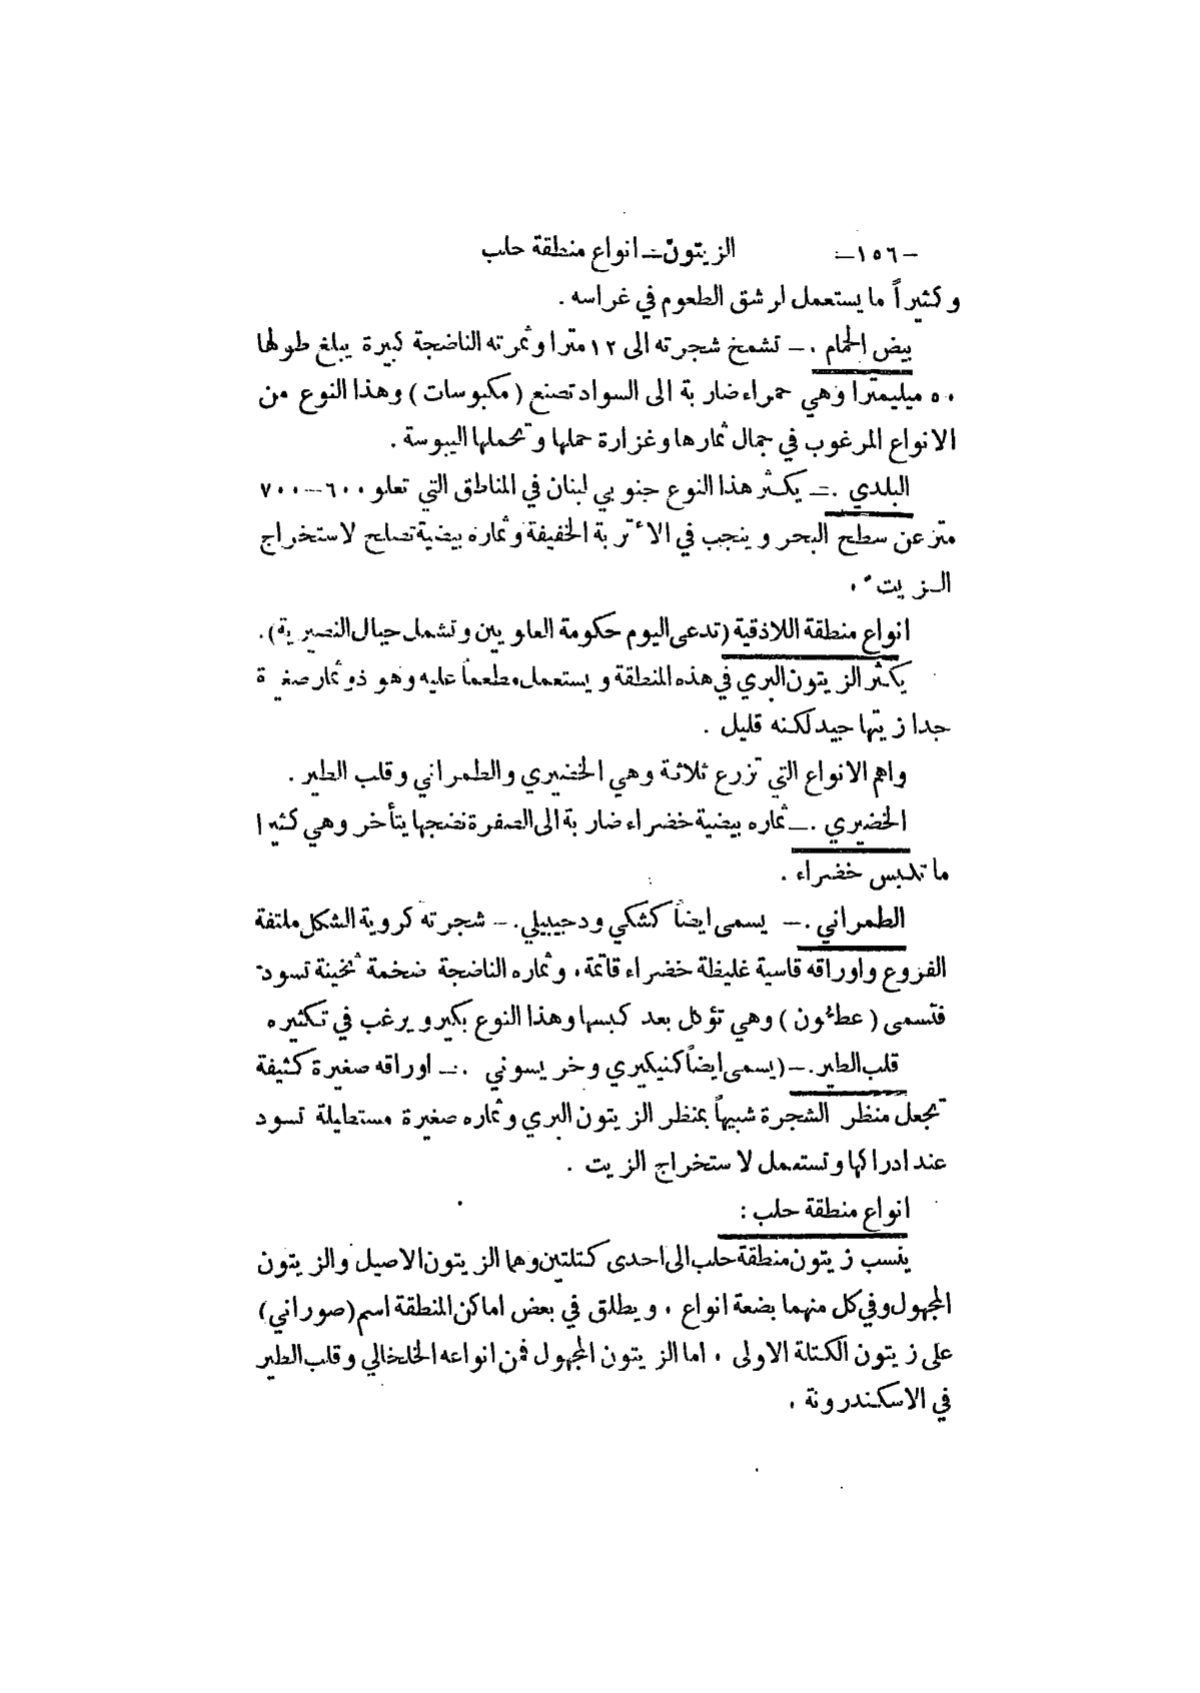 -١٥٦- الزيتون - انواع منطقة حلب
وكثيراً ما يستعمل لرشق الطعوم في غراسه .
بيض الحمام . - تشمخ شجرته الى ١٢ مترا وثمرته الناضجة كبيرة يبلغ طولها
٥٠ ميليمترا وهي حمراء ضاربة الى السواد تصنع (مكبوسات) وهذا النوع من
الانواع المرغوب في جمال ثمارها وغزارة حملها وتحملها اليبوسة .
البلدي . - يكثر هذا النوع جنوبي لبنان في المناطق التي تعلو ٦٠٠-٧٠٠
متر عن سطح البحر وينجب في الاتربة الخفيفة وثماره بيضية تصلح لاستخراج
الزيت .
انواع منطقة اللاذقية (تدعى اليوم حكومة العلويين وتشمل جبال النصيرية) .
يكثر الزيتون البري في هذه المنطقة ويستعمل مطعماً عليه وهو ذو ثمار صغيرة
جدا زيتها جيد لكنه قليل .
واهم الانواع التي تزرع ثلاثة وهي الخضيري والطمراني وقلب الطير .
الخضيري . - ثماره بيضية خضراء ضاربة الى الصفرة نضجها يتأخر وهي كثيرا
ما تكبس خضراء .
الطمراني . - يسمى ايضاً كشكي ودحيبيلي . - شجرته كروية الشكل ملتفة
الفروع واوراقه قاسية غليظة خضراء قاتمة ، وثماره الناضجة ضخمة ثخينة تسود
فتسمى (عطون) وهي تؤكل بعد كبسها وهذا النوع بكير ويرغب في تكثيره
قلب الطير . - (يسمى ايضاً كنيكيري وخريسوني . - اوراقه صغيرة كثيفة
تجعل منظر الشجرة شبيهاً بمنظر الزيتون البري وثماره صغيرة مستطيلة تسود
عند ادراكها وتستعمل لاستخراج الزيت .
انواع منطقة حلب :
ينسب زيتون منطقة حلب الى احدى كتلتين وهما الزيتون الاصيل والزيتون
المجهول وفي كل منهما بضعة انواع ، ويطلق في بعض اماكن المنطقة اسم (صوراني)
على زيتون الكتلة الاولى ، اما الزيتون المجهول فمن انواعه الخلخالي وقلب الطير
في الاسكندرونة .